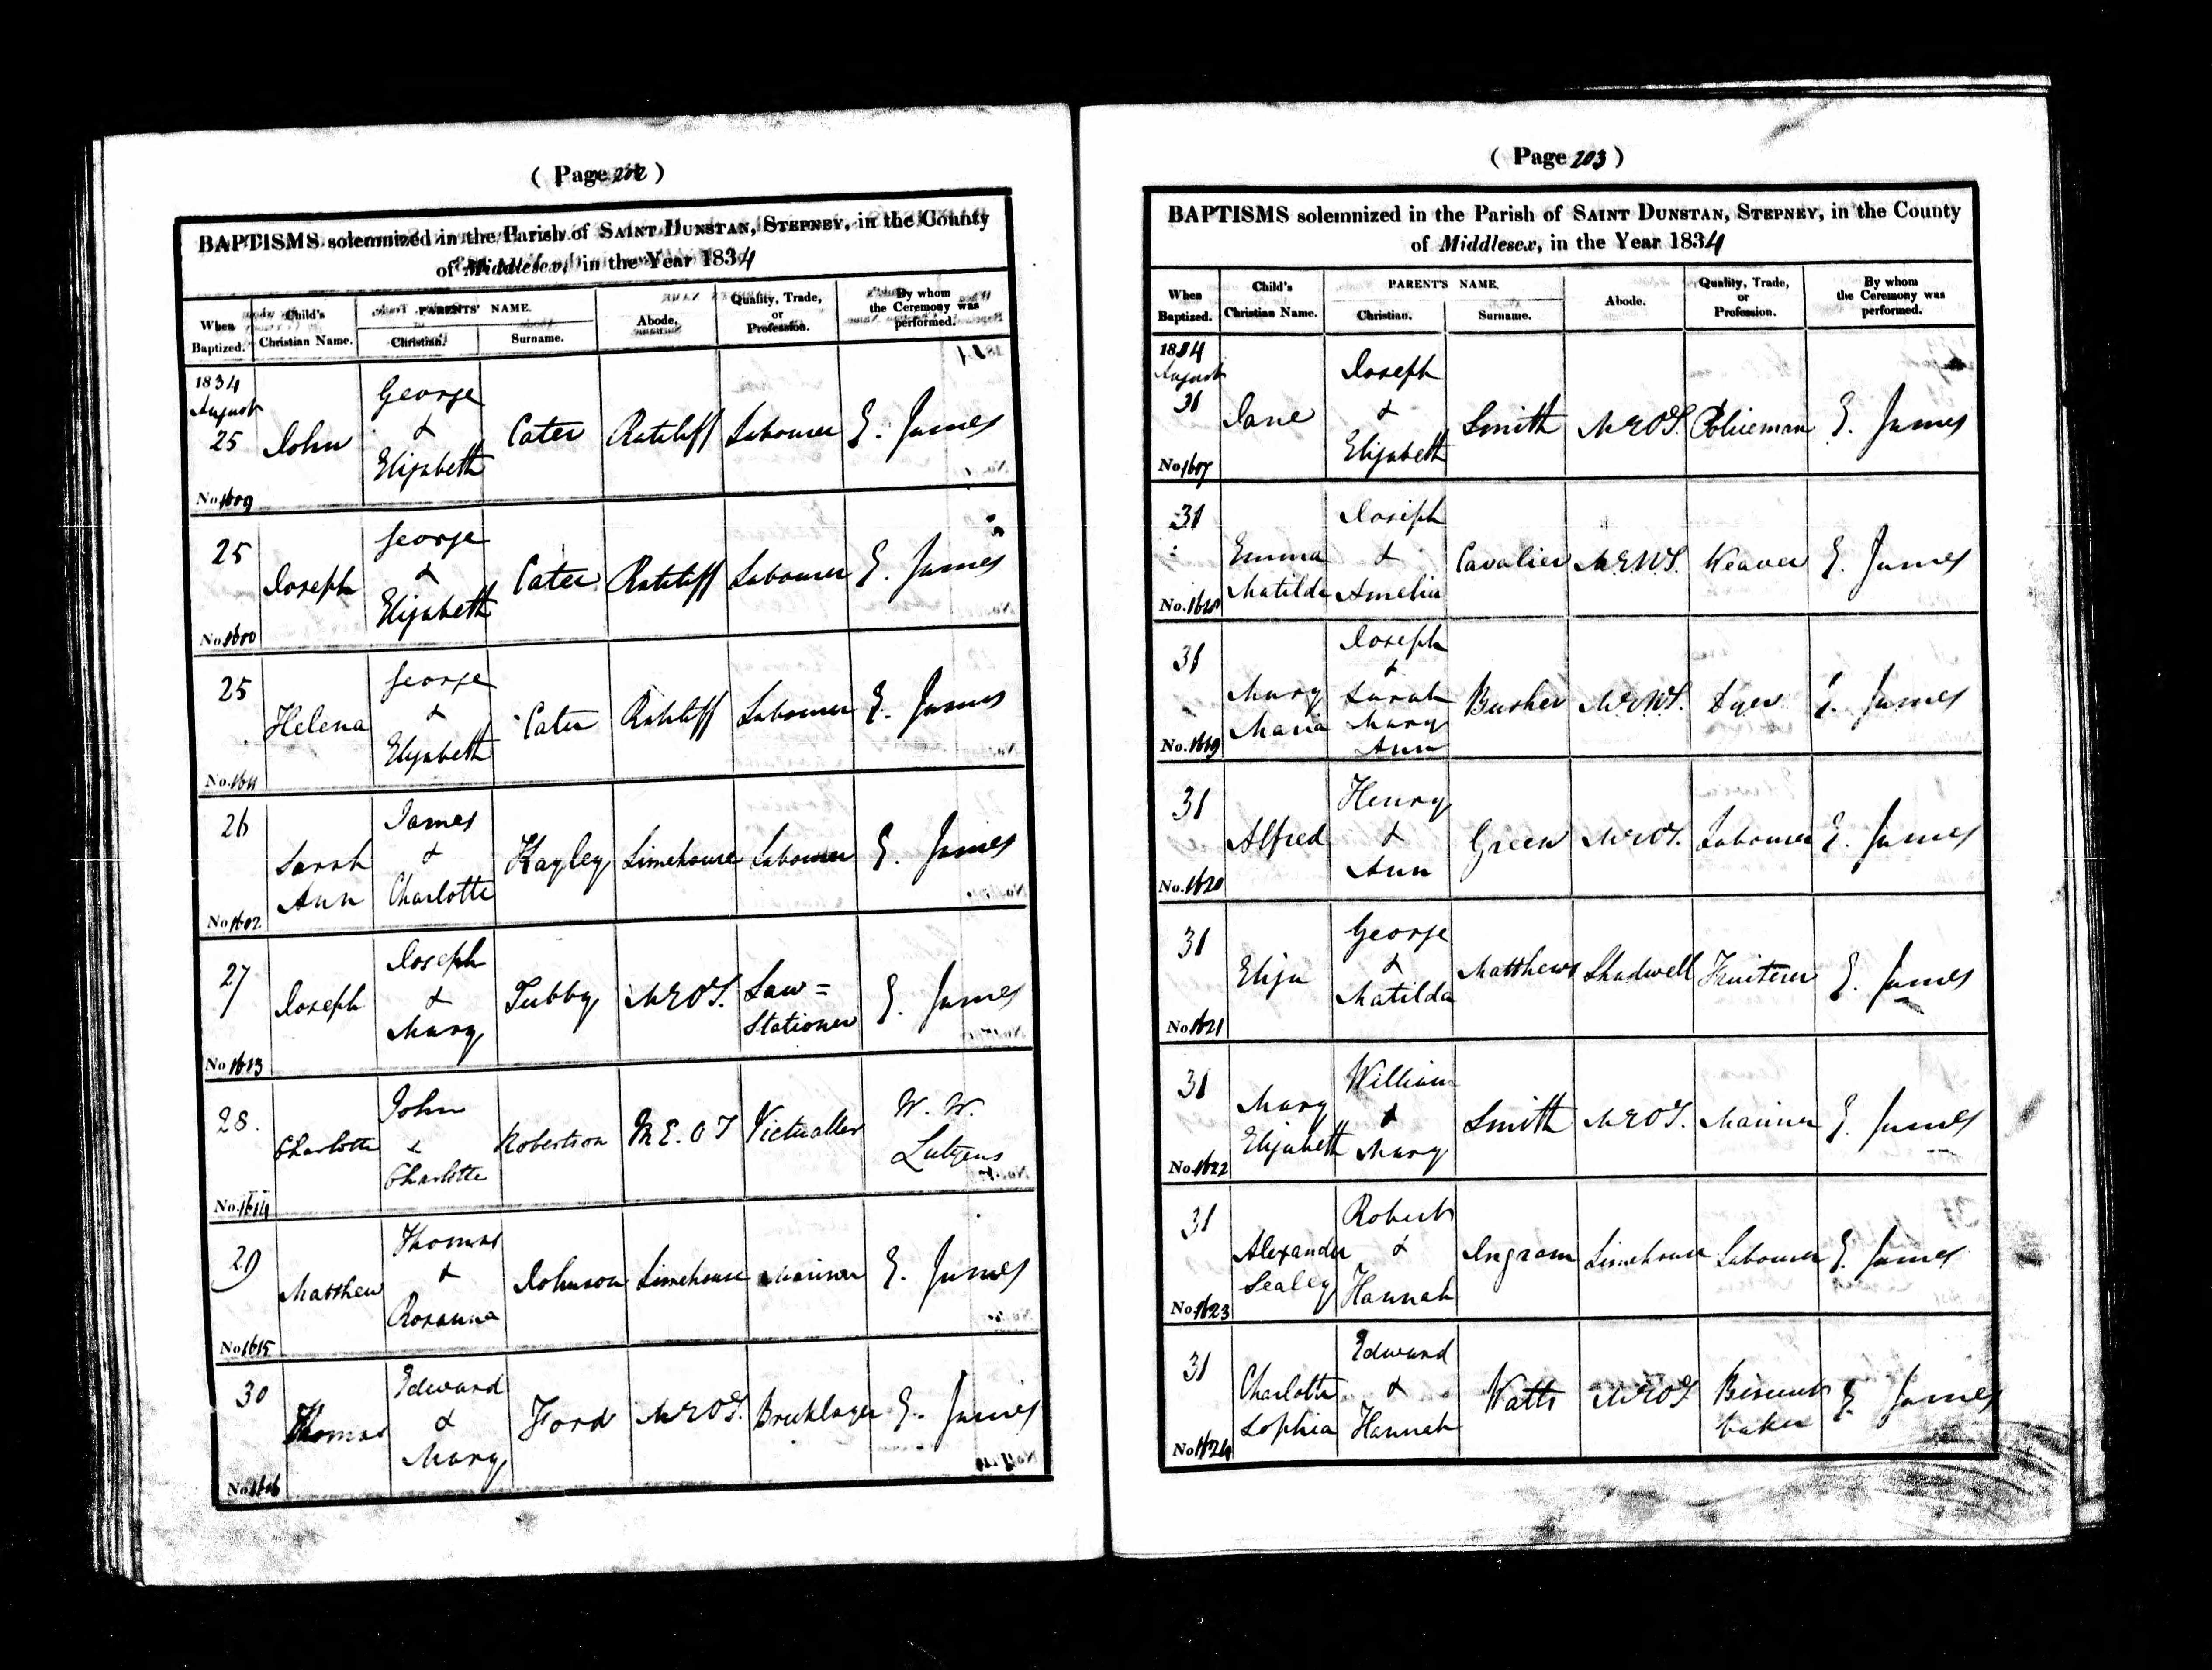 ( Page 202 )
BAPTISMS solemnized in the Parish of SAINT DUNSTAN, STEPNEY, in the County
of Middlesex, in the Year 1834
When Baptized. Child's Christian Name. PARENTS' NAME. Christian. Surname. Abode. Quality, Trade, or Profession. By whom the Ceremony was performed.
1834 August 25 John George & Elizabeth Cater Ratcliff Labourer E. James
No. 1609
25 Joseph George & Elizabeth Cater Ratcliff Labourer E. James
No. 1610
25 Helena George & Elizabeth Cater Ratcliff Labourer E. James
No. 1611
26 Sarah Ann James & Charlotte Kayley Limehouse Labourer E. James
No. 1612
27 Joseph Joseph & Mary Tubby M.E.O.T. Law= Stationer E. James
No. 1613
28. Charlotte John & Charlotte Robertson M.E.O.T Victualler W. W. Lutyens
No. 1614
29 Matthew Thomas & Rosanna Johnson Limehouse Mariner E. James
No. 1615
30 Thomas Edward & Mary Ford M.E.O.T. Bricklayer E. James
No. 1616
( Page 203 )
BAPTISMS solemnized in the Parish of SAINT DUNSTAN, STEPNEY, in the County
of Middlesex, in the Year 1834
When Baptized. Child's Christian Name. PARENT'S NAME. Christian. Surname. Abode. Quality, Trade, or Profession. By whom the Ceremony was performed.
1834 August 31 Jane Joseph & Elizabeth Smith M.E.O.T. Policeman E. James
No. 1617
31 Emma Matilda Joseph & Amelia Cavalier M.E.N.T. Weaver E. James
No. 1618
31 Mary Maria Joseph & Sarah Mary Ann Busher M.E.N.T. Dyer E. James
No. 1619
31 Alfred Henry & Ann Green M.E.O.T. Labourer E. James
No. 1620
31 Eliza George & Matilda Matthews Shadwell Fruiterer E. James
No. 1621
31 Mary Elizabeth William & Mary Smith M.E.O.T. Mariner E. James
No. 1622
31 Alexander Sealey Robert & Hannah Ingram Limehouse Labourer E. James
No. 1623
31 Charlotte Sophia Edward & Hannah Watts M.E.O.T Biscuit baker E. James
No. 1624